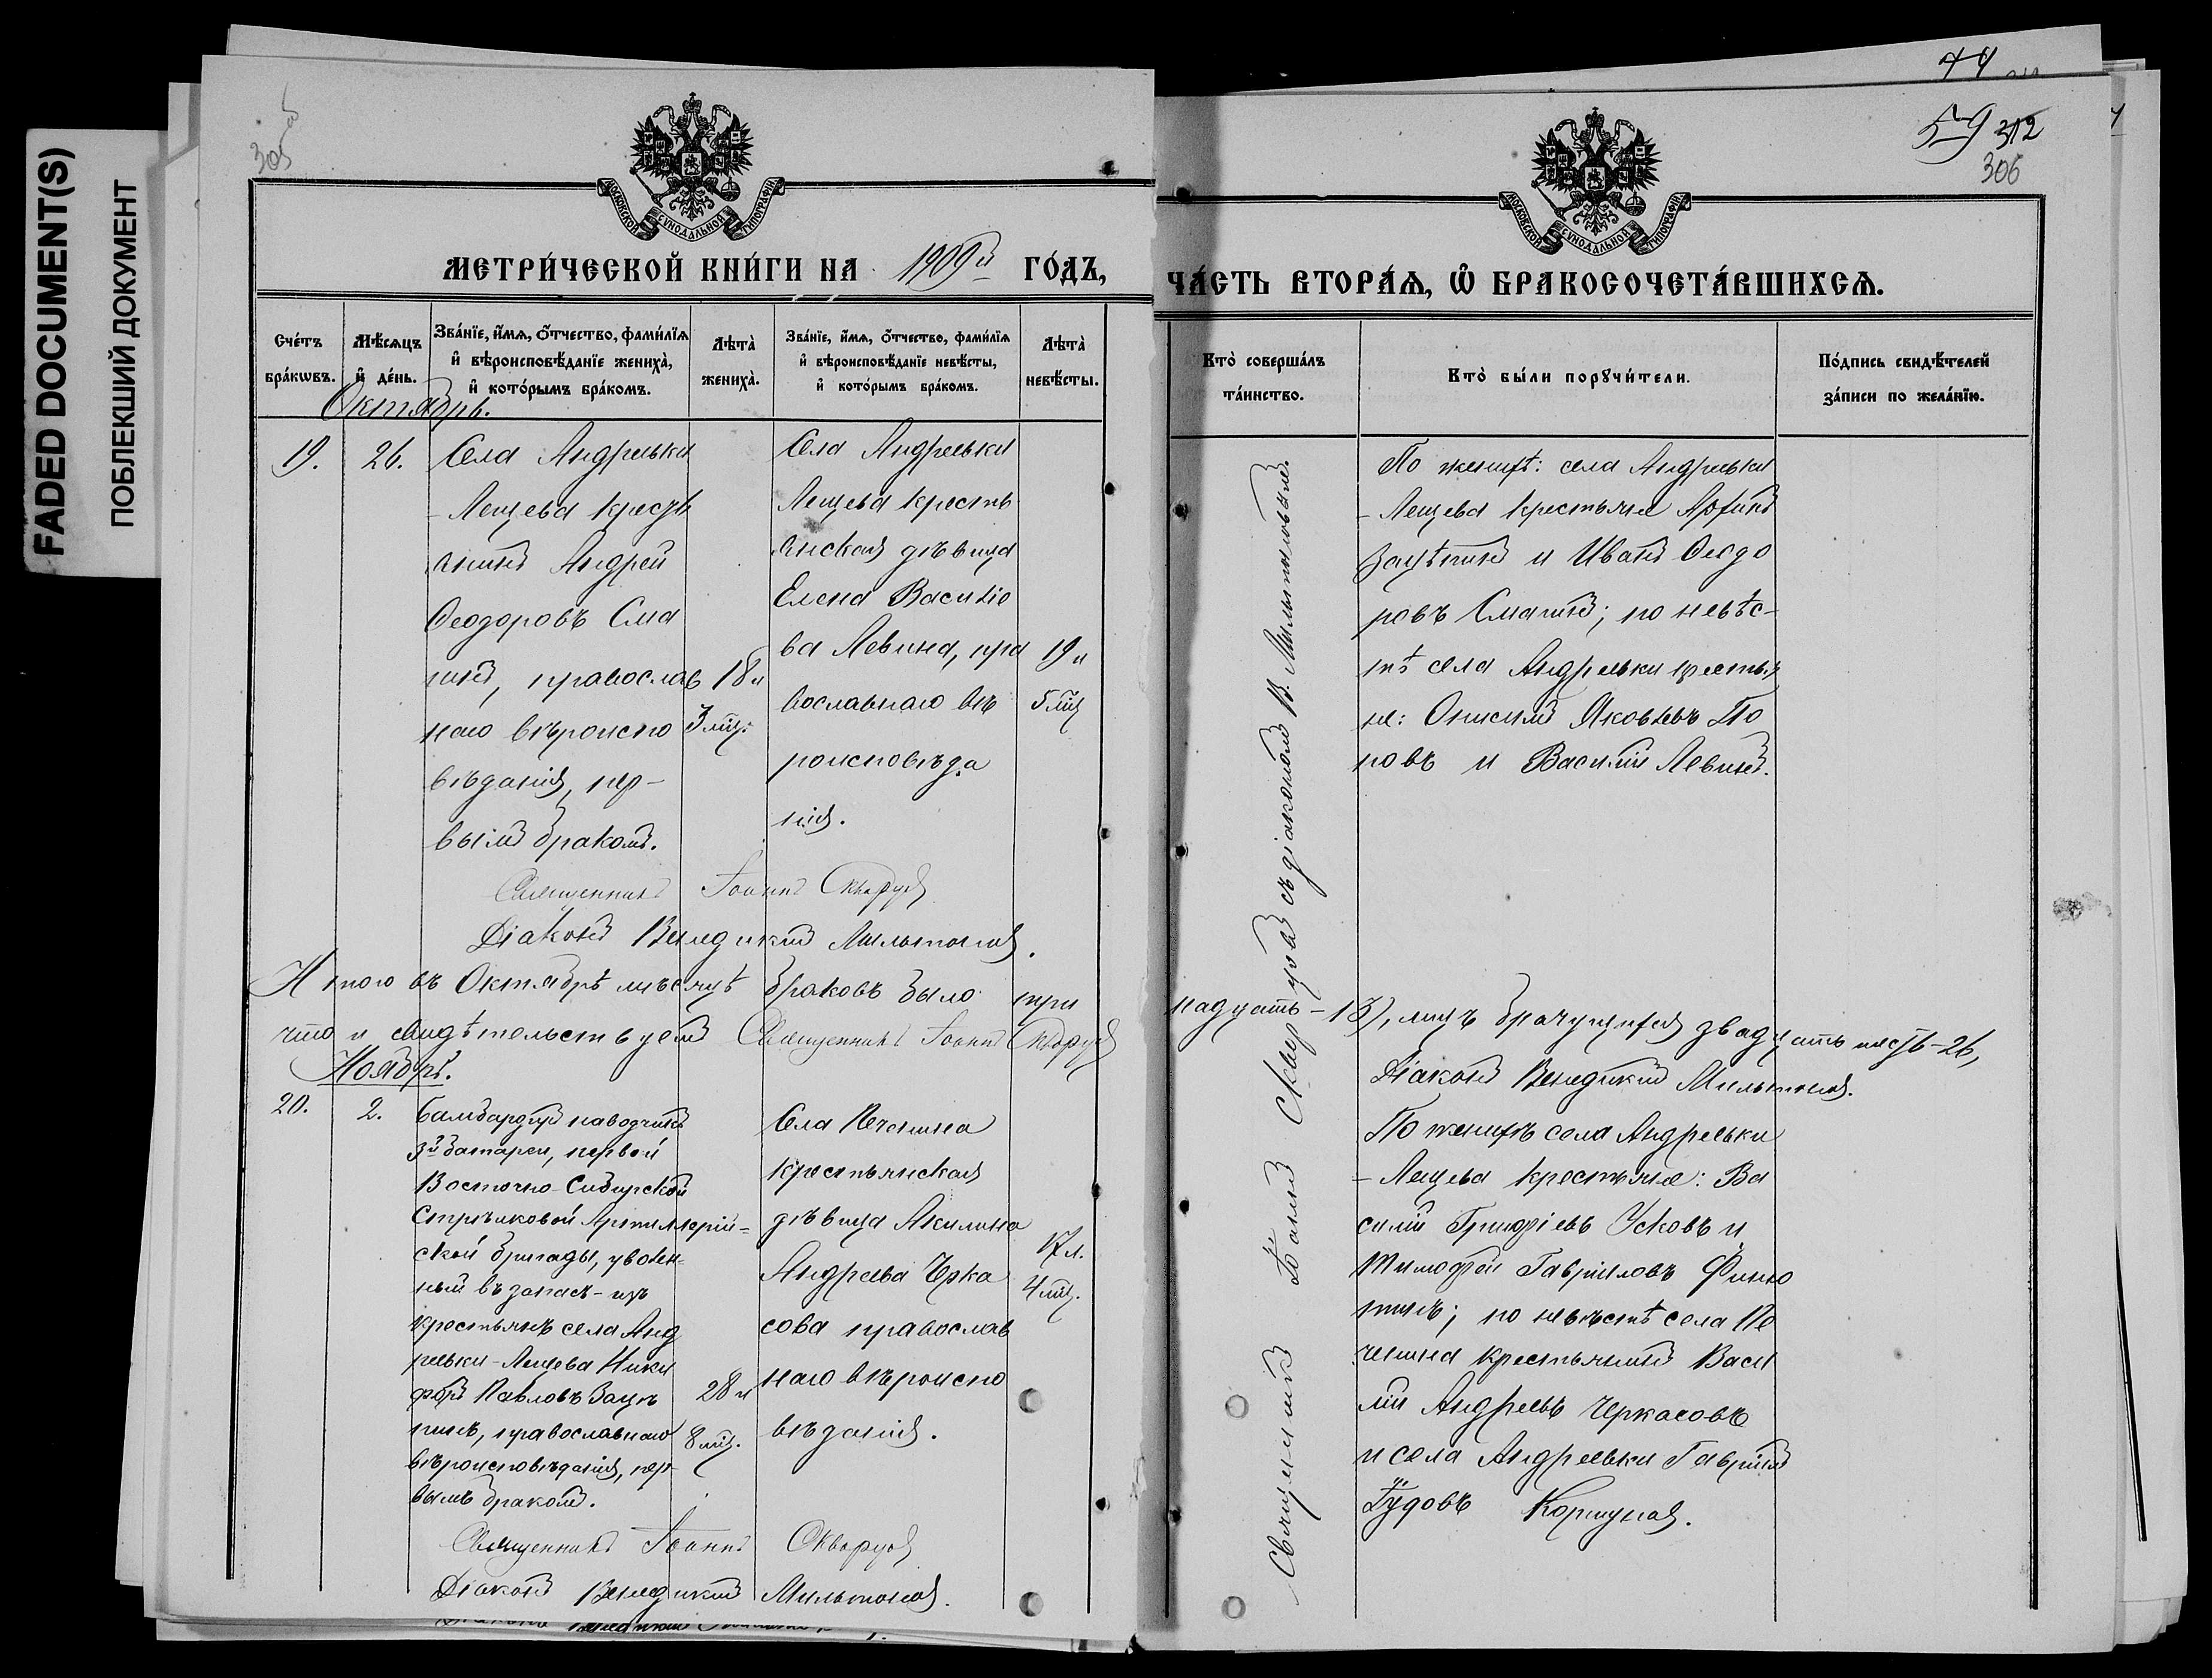 FADED DOCUMENT(S)
ПОБЛЕКШИЙ ДОКУМЕНТ
305
МОСКОВСКОЙ СУНОДАЛЬНОЙ ТИПОГРАФІИ
МЕТРИ́ЧЕСКОЙ КНИ́ГИ НА 1909й ГО́ДЪ,
Сче́тъ бра́кωвъ.
Мѣ́сяцъ и҆ де́нь.
Зва́нїе, и҆́мѧ, ѻ҆́тчество, фами́лїѧ
и҆ вѣроисповѣ́данїе жениха̀,
и҆ кото́рымъ бра́комъ.
Лѣта̀ жениха̀.
Зва́нїе, и҆́мѧ, ѻ҆́тчество, фами́лїѧ
и҆ вѣроисповѣ́данїе невѣ́сты,
и҆ кото́рымъ бра́комъ.
Лѣта̀ невѣ́сты.
Октябрь.
19.
26.
Села Андреевки
- Лещева кресть
янинъ Андрей
Ѳеодоровъ Сма
гинъ, православ
наго вѣроиспо
вѣданія, пер-
вымъ бракомъ.
18 л
3 мц.
Села Андреевки
Лещева кресть
янская дѣвица
Елена Василіе
ва Левина, пра
вославнаго вѣ
роисповѣда
нія.
19 л
5 мц
Священникъ Іоаннъ Скворцовъ
Діаконъ Венедиктъ Мильтоновъ.
Итого въ Октябрѣ мѣсяцѣ браковъ было три
что и свидѣтельствуемъ Священникъ Іоаннъ Скворцовъ
Ноябрь.
20.
2.
Бамбардиръ наводчикъ
3й батареи, первой
Восточно-Сибирской
Стрѣлковой Артиллерій=
ской бригады, уволен-
ный въ запасъ - изъ
крестьянъ села Анд
реевки-Лещева Ники
форъ Павловъ Зацѣ
пинъ, православнаго
вѣроисповѣданія, пер-
вымъ бракомъ.
28 л
8 мц.
Села Печенина
крестьянская
дѣвица Акилина
Андреева Черка
сова православ
наго вѣроиспо
вѣданія.
17 л.
4 мц.
Священникъ Іоаннъ Скворцовъ
Діаконъ Венедиктъ Мильтоновъ.
44
59 312
306
МОСКОВСКОЙ СУНОДАЛЬНОЙ ТИПОГРАФІИ
ЧА́СТЬ ВТОРА́Ѧ, Ѽ БРАКОСОЧЕТА́ВШИХСѦ.
Кто̀ соверша́лъ
та́инство.
Кто̀ бы́ли порꙋчи́тели.
По́дпись свидѣ́телей
за́писи по жела́нїю.
Священникъ Іоаннъ Скворцовъ съ діакономъ В. Мильтоновымъ.
По женихѣ: села Андреевки
- Лещева крестьяне
Зацѣпинъ и Иванъ Ѳеодо
ровъ Смагинъ; по невѣс-
тѣ села Андреевки крестья
не: Онисимъ Яковлевъ По
повъ и Василій Левинъ.
надцать - 13), лицъ брачущихся двадцать шесть - 26,
Діаконъ Венедиктъ Мильтоновъ.
По женихѣ села Андреевки
- Лещева крестьяне: Ва
силій Усковъ и
Тимофей Гавриловъ
по невѣстѣ села Пе
ченина крестьянинъ Васи
лій Андреевъ Черкасовъ
и села Андреевки Гавріилъ